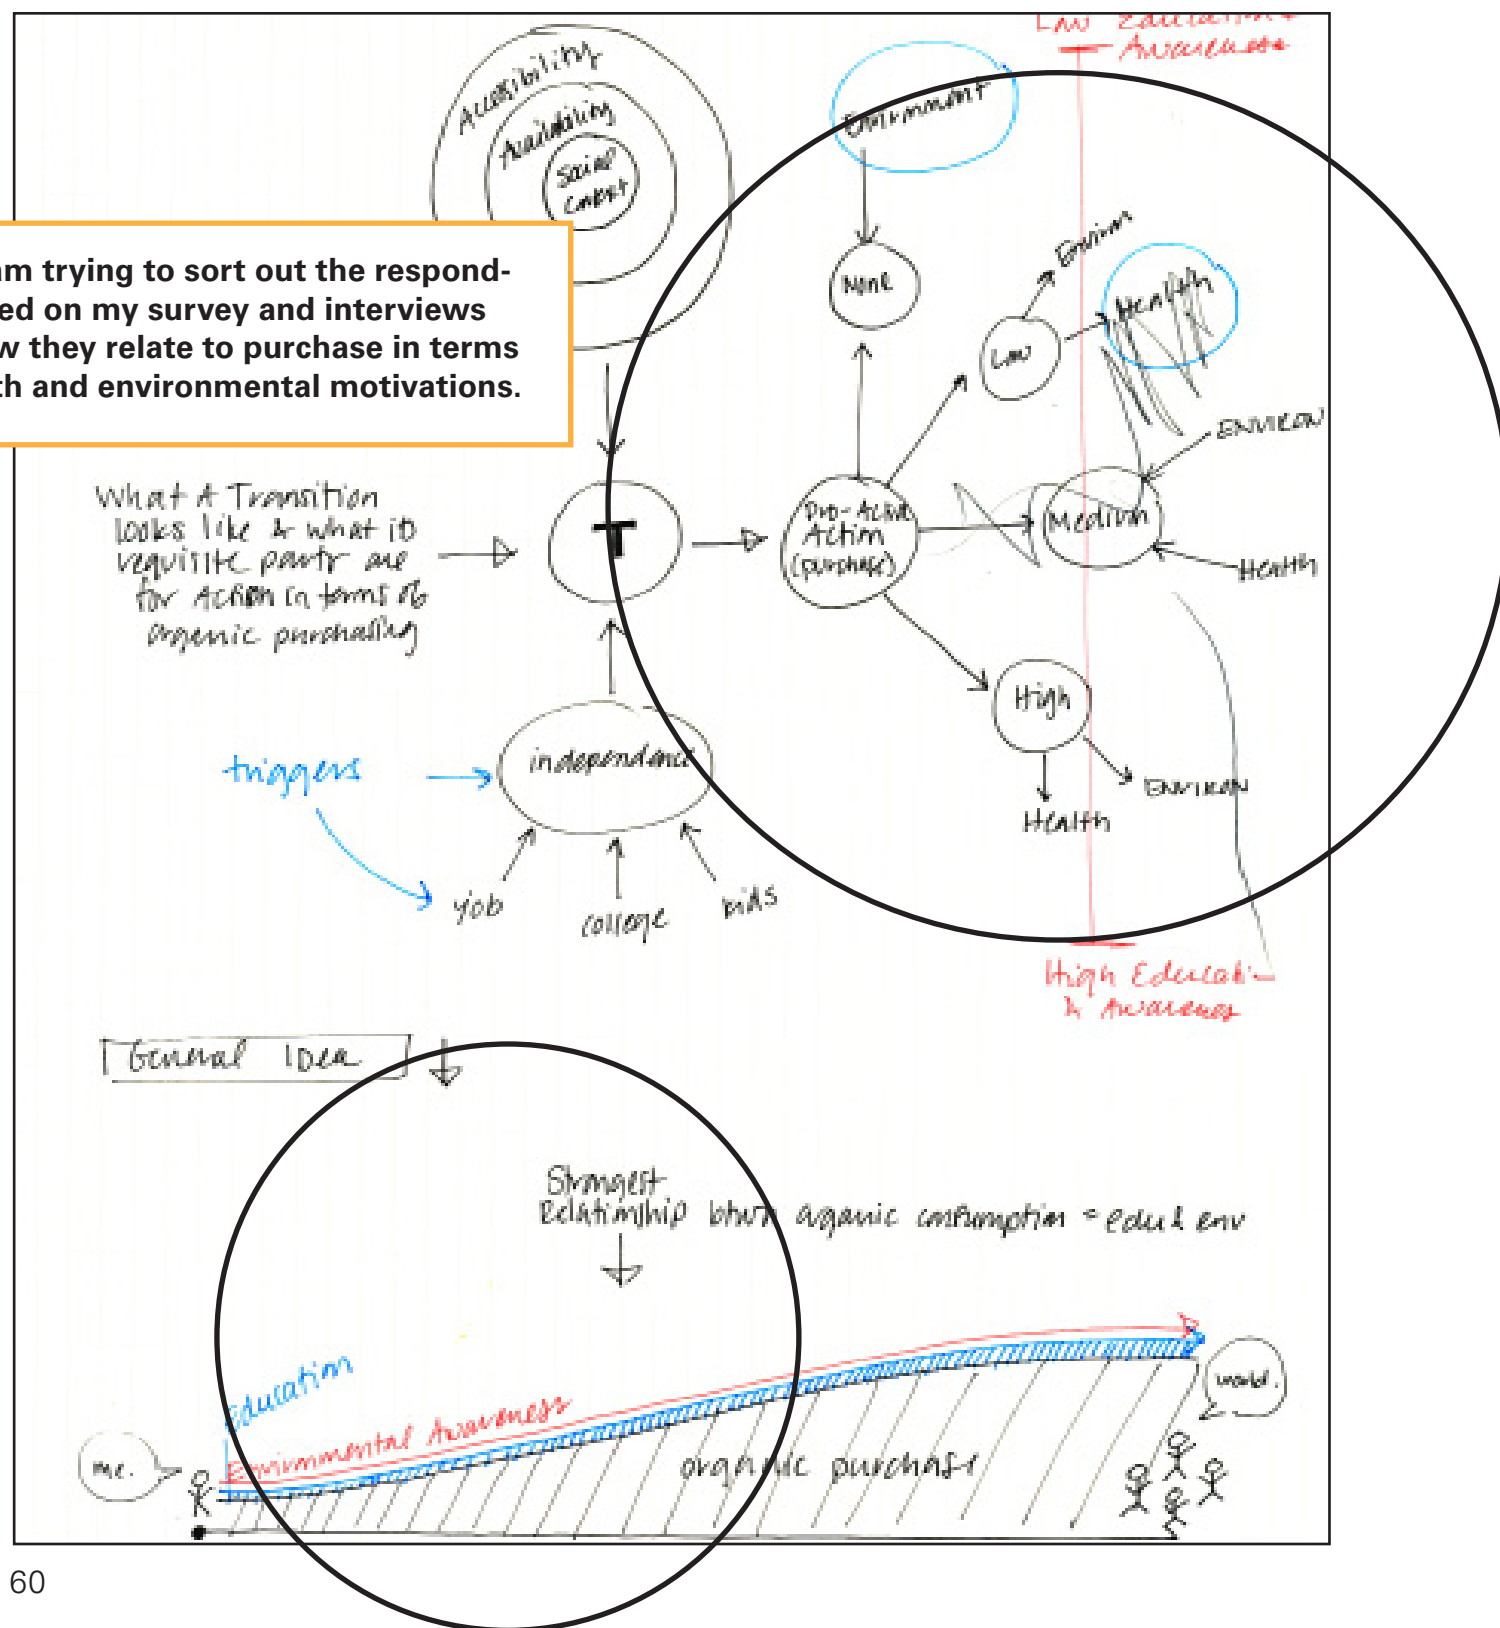 Low Education &
Awareness
Accessibility
Availability
Social
Context
Environment
None
Environ
Low
Health
am trying to sort out the respond-
ed on my survey and interviews
w they relate to purchase in terms
th and environmental motivations.
ENVIRON
What A Transition
looks like & what it's
requisite parts are
for Action in terms of
organic purchasing
T
Pro-Active
Action
(purchase)
Medium
Health
High
ENVIRON
Health
triggers
independence
job
college
kids
High Educati-
& Awareness
General IDea
Strongest
Relationship btwn organic consumption = edu & env
education
Environmental Awareness
organic purchase
me.
world.
60